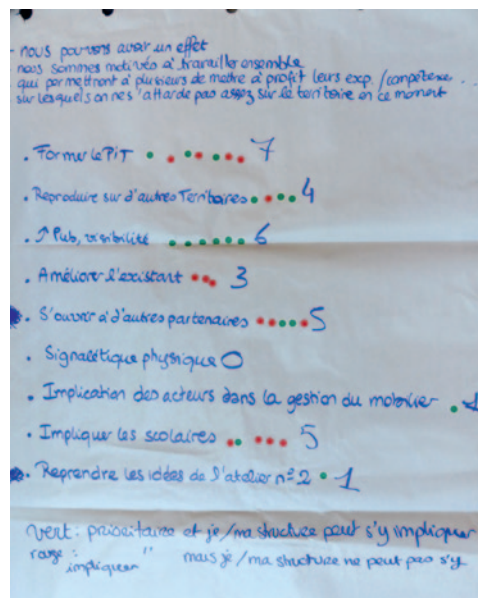 - nous pouvons avoir un effet
nous sommes motivés à travailler ensemble
qui permettront à plusieurs de mettre à profit leurs exp. / compétence . .
sur lesquels on ne s'attarde pas assez sur le territoire en ce moment
. Former le PiT 7
. Reproduire sur d'autres Territoires 4
. ↗ Pub, visibilité 6
. Améliorer l'existant 3
. S'ouvrir à d'autres partenaires 5
. Signalétique physique 0
. Implication des acteurs dans la gestion du mobilier 1
. Impliquer les scolaires 5
. Reprendre les idées de l'atelier n°2 1
Vert : prioritaire et je / ma structure peut s'y impliquer
rouge : " mais je / ma structure ne peut pas s'y
impliquer